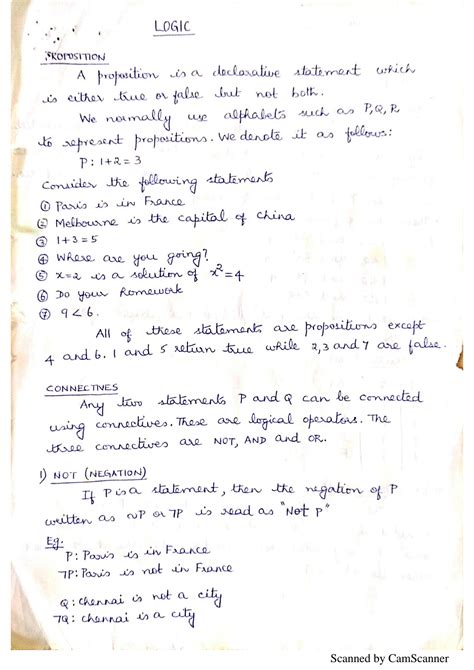 LOGIC
PROPOSITION
A proposition is a declarative statement which
is either true or false but not both.
We normally use alphabets such as P,Q,R
to represent propositions. We denote it as follows:
P: 1+2=3
Consider the following statements
① Paris is in France
② Melbourne is the capital of China
③ 1+3=5
④ Where are you going?
⑤ x=2 is a solution of x²=4
⑥ Do your homework
⑦ 9<6.
All of these statements are propositions except
4 and 6. 1 and 5 return true while 2,3 and 7 are false.
CONNECTIVES
Any two statements P and Q can be connected
using connectives. These are logical operators. The
three connectives are NOT, AND and OR.
1) NOT (NEGATION)
If P is a statement, then the negation of P
written as ~P or ꓶP is read as "Not P"
Eg:
P: Paris is in France
ꓶP: Paris is not in France
Q: Chennai is not a city
ꓶQ: Chennai is a city
Scanned by CamScanner